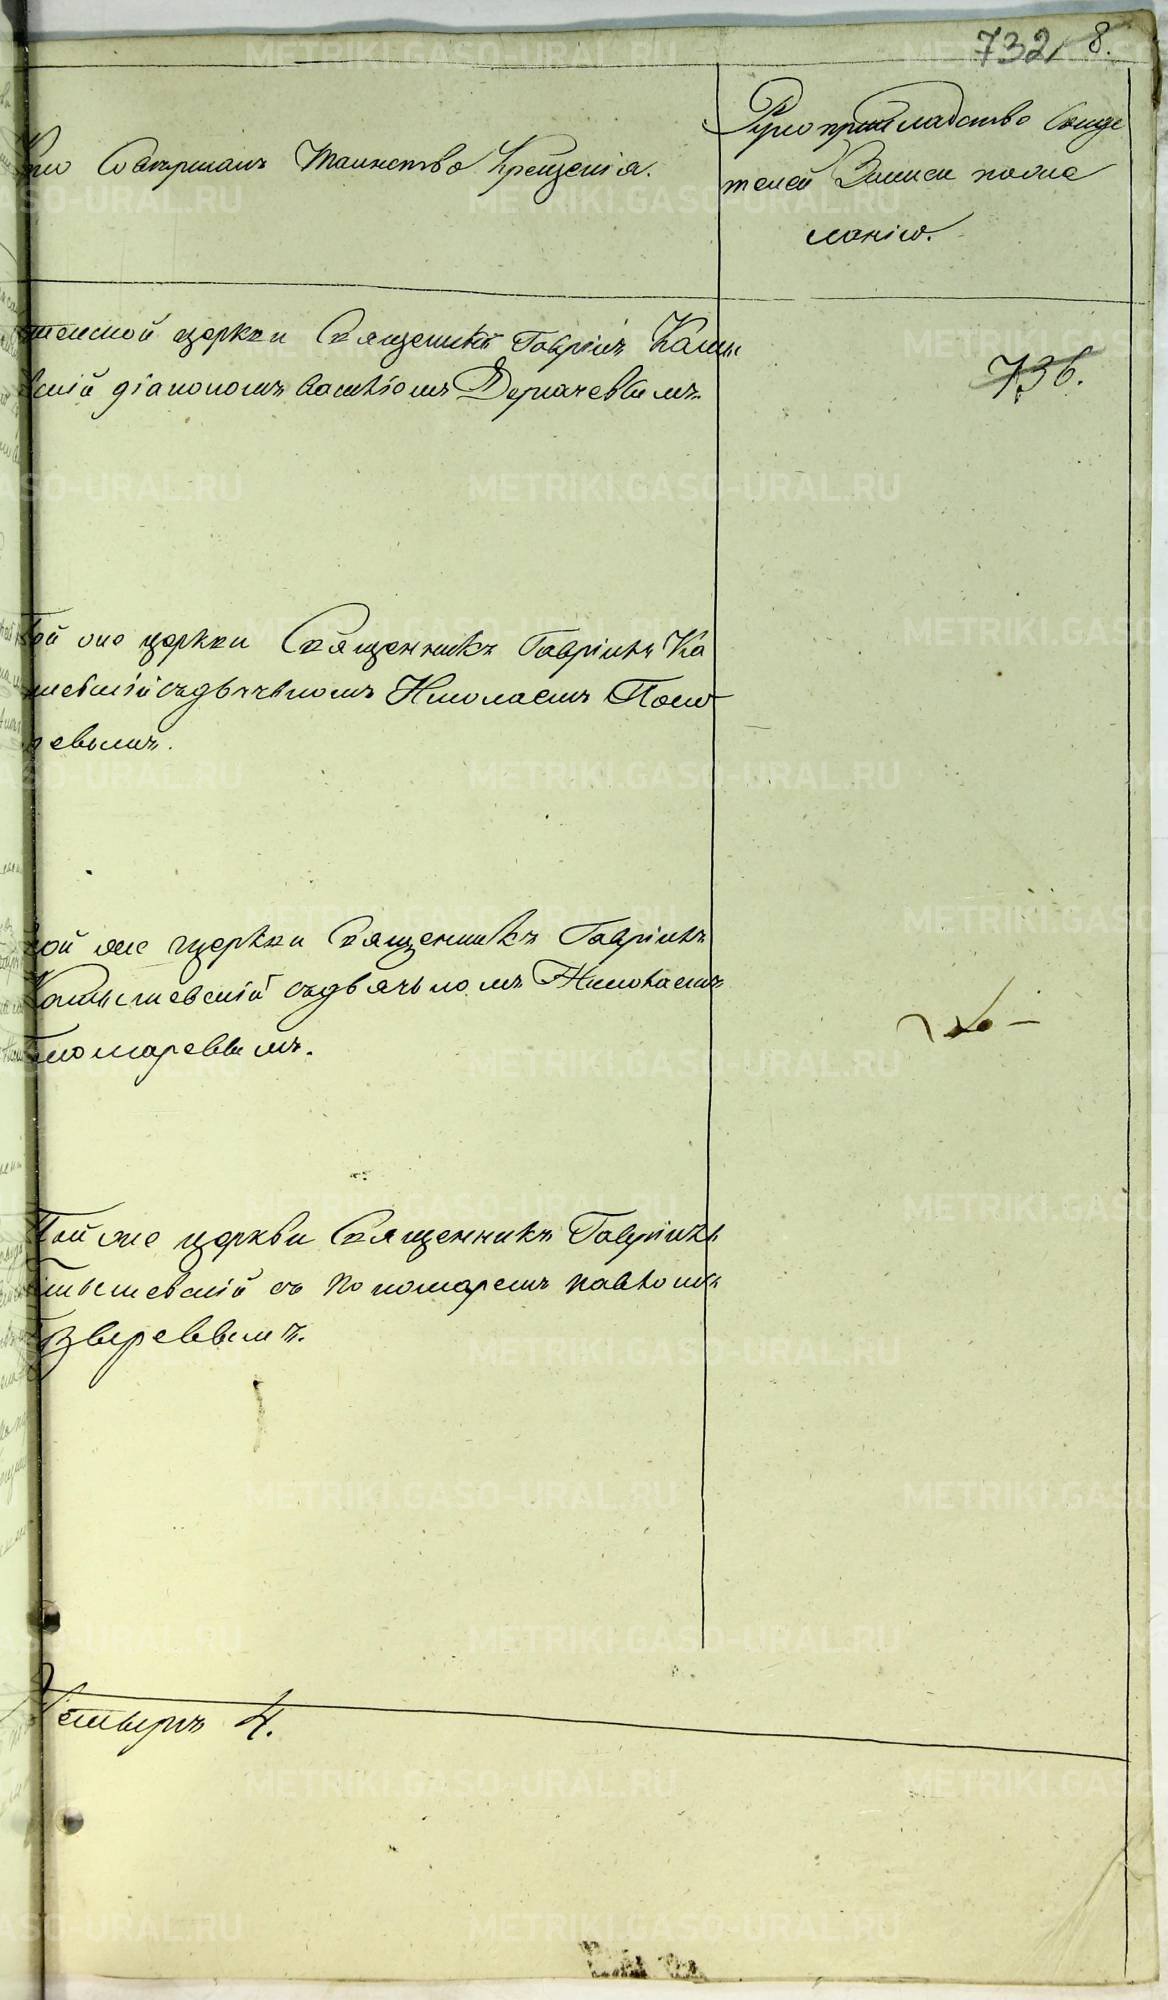 732 8.
Кто Совершалъ Таинство Крещенія.
Рукоприкладство Свиде
телей Записи поже
ланію.
церкви Священникъ Гавріилъ
діакономъ Василіомъ Дерпачеввымъ.
736.
Той же церкви Священникъ Гавріилъ Ка
съдьячькомъ Николаемъ Поно
ревымъ.
Той же церкви Священникъ Гавріилъ
Катышевскій съдьячькомъ Николаемъ
Пономареввымъ.
Той же церкви Священникъ Гавріилъ
тышевскій съ пономаремъ павломъ
Звереввымъ.
Четыре 4.
METRIKI.GASO-URAL.RU